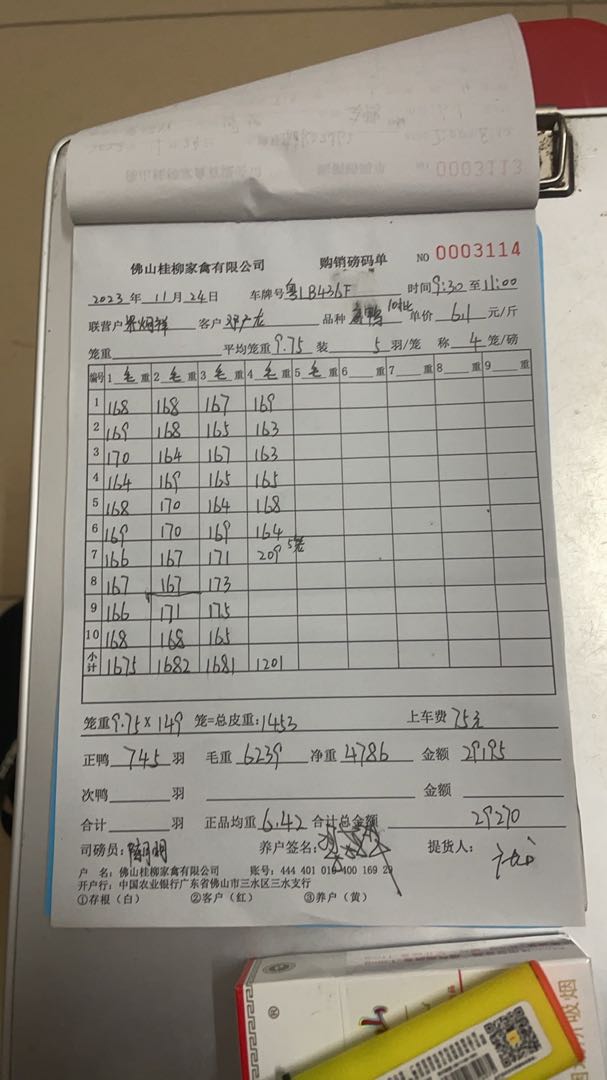 0003113
佛山桂柳家禽有限公司 购销磅码单 NO 0003114
2023 年 11 月 24 日 车牌号 粤LB436F 时间 9:30 至 11:00
联营户 客户 邓广龙 品种 鸭 单价 6.1 元/斤
笼重 平均笼重 9.75 装 5 羽/笼 称 4 笼/磅
编号 1 毛 重 2 毛 重 3 毛 重 4 毛 重 5 毛 重 6 重 7 重 8 重 9 重
1 168 168 167 169
2 169 168 165 163
3 170 164 167 163
4 164 169 165 165
5 168 170 164 168
6 169 170 169 164
7 166 167 171 209 5笼
8 167 167 173
9 166 171 175
10 168 168 165
小计 1675 1682 1681 1201
笼重 9.75 × 149 笼=总皮重: 1453 上车费 75元
正鸭 745 羽 毛重 6239 净重 4786 金额 29195
次鸭 羽 金额
合计 羽 正品均重 6.42 合计总金额 29270
司磅员: 养户签名: 提货人:
户 名: 佛山桂柳家禽有限公司 账号: 444 401 010 400 169 29
开户行: 中国农业银行广东省佛山市三水区三水支行
①存根（白） ②客户（红） ③养户（黄）